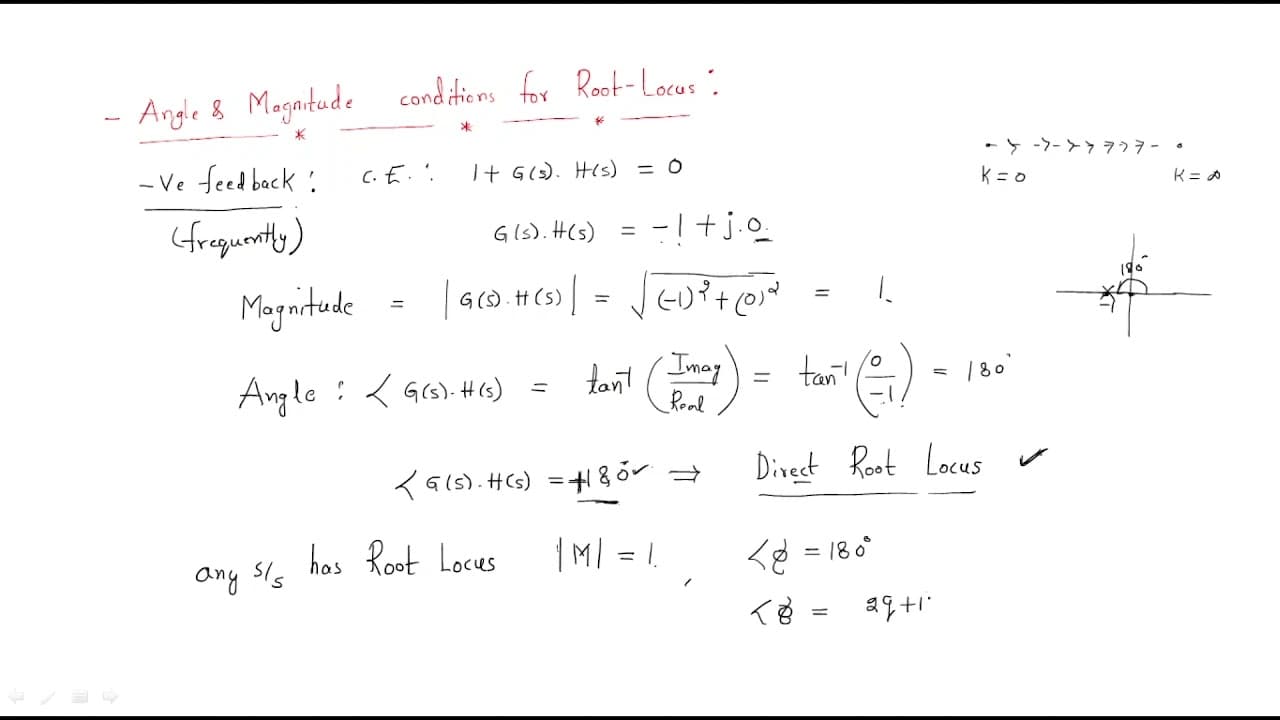 - Angle & Magnitude conditions for Root-Locus:
-Ve feedback: C.E.: 1 + G(s). H(s) = 0
(frequently)
G(s). H(s) = -1 + j.0.
K = 0 K = ∞
Magnitude = |G(s). H(s)| = √((-1)² + (0)²) = 1.
180°
-1
Angle: ∠ G(s). H(s) = tan⁻¹(Imag/Real) = tan⁻¹(0/-1) = 180°
∠ G(s). H(s) = +180° ✓ ⇒ Direct Root Locus ✓
any s/s has Root Locus |M| = 1. , ∠ϕ = 180°
∠ϕ = 2q+1